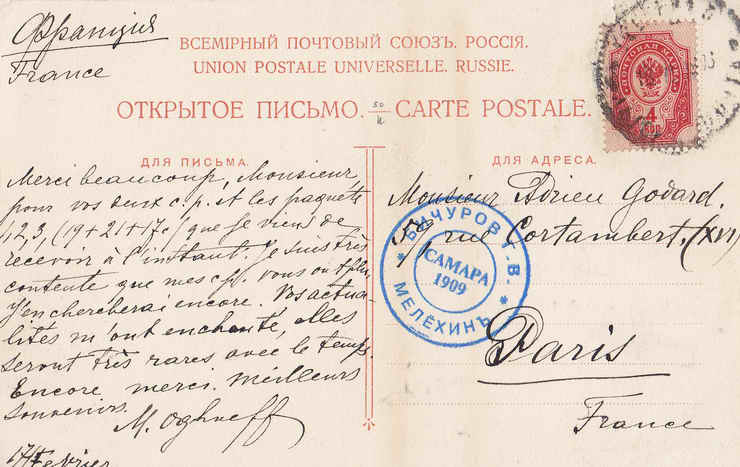 Франція
France
ВСЕМІРНЫЙ ПОЧТОВЫЙ СОЮЗЪ. РОССІЯ.
UNION POSTALE UNIVERSELLE. RUSSIE.
ОТКРЫТОЕ ПИСЬМО. — CARTE POSTALE.
ДЛЯ ПИСЬМА.
Merci beaucoup, Monsieur
pour vos deux c. p. et les paquets
1,2,3, (19+21+17c) que je viens de
recevoir à l'instant. Je suis très
contente que mes c.p. vous ont plu,
J'en chercherai encore. Vos actua-
lités m'ont enchanté, elles
seront très rares avec le temps.
Encore merci. Meilleurs
souvenirs.
M. Ogh
Fevrier
ДЛЯ АДРЕСА.
Monsieur Adrien Godard.
rue Cortambert. (XVI)
Paris
France
БИЧУРОВ Г.В.
САМАРА
1909
* МЕЛЁХИНЪ *
ПОЧТОВАЯ МАРКА
4
КОП.